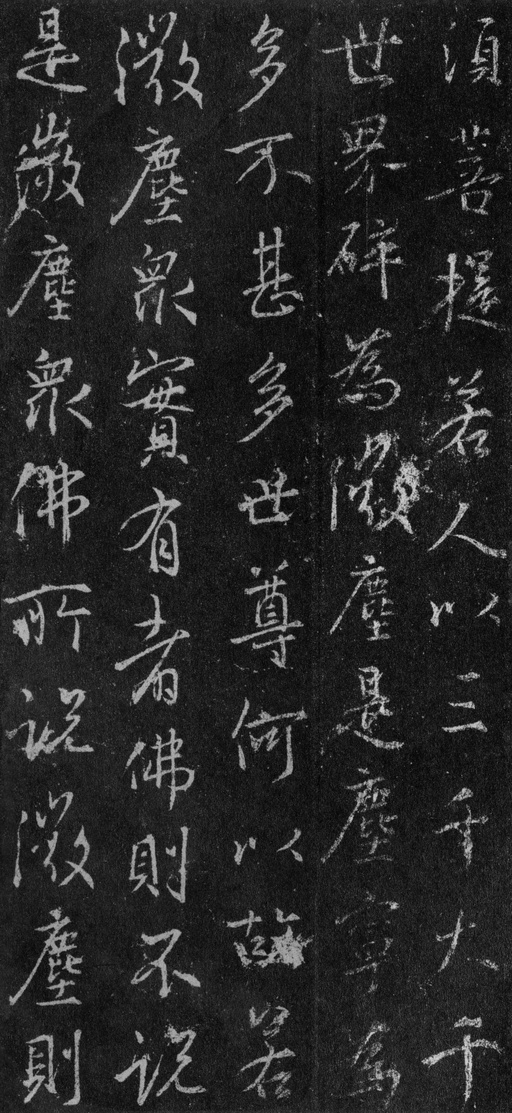 須菩提若人以三千大千
世界碎為微塵是塵寧為
多不甚多世尊何以故若
微塵眾實有者佛則不說
是微塵眾佛所說微塵則